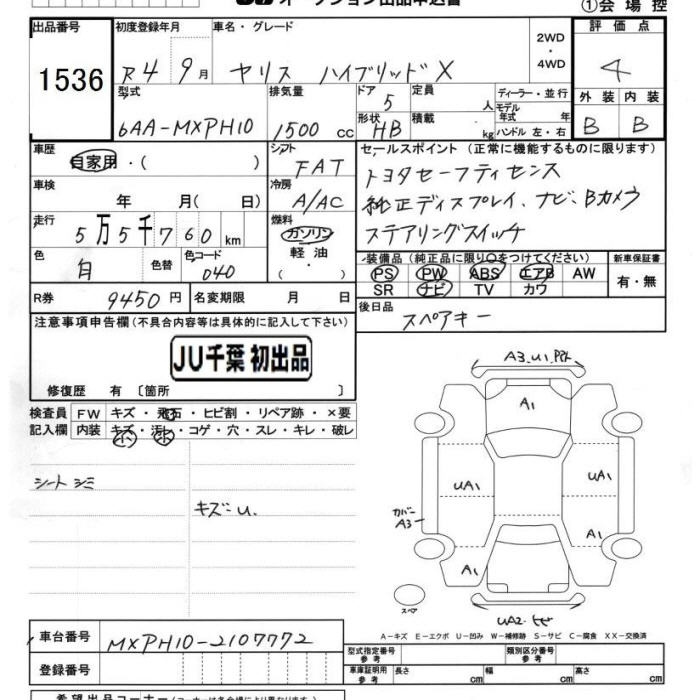 オークション出品申込書
①会場控
出品番号
1536
初度登録年月
R4 9月
車名・グレード
ヤリス ハイブリッドX
2WD
・
4WD
評価点
4
型式
6AA-MXPH10
排気量
1500 CC
ドア
5
形状
HB
定員
人
積載
kg
ディーラー・並行
モデル
年式 年
ハンドル 左・右
外装 内装
B B
車歴
自家用・( )
シフト
FAT
セールスポイント (正常に機能するものに限ります)
トヨタセーフティセンス
純正ディスプレイ、ナビ、Bカメラ
ステアリングスイッチ
車検
年 月( 日)
冷房
A/AC
走行
5万5千760km
燃料
ガソリン
軽油
( ・ )
色
白
色替
色コード
040
装備品(純正品に限り○をつけてください)
PS PW ABS エアB AW
SR ナビ TV カワ
新車保証書
有・無
R券
9450円
名変期限 月 日
後日品
スペアキー
注意事項申告欄(不具合内容等は具体的に記入して下さい)
JU千葉 初出品
修復歴 有 〔箇所 〕
検査員
記入欄
FW キズ・飛石・ヒビ割・リペア跡・×要
内装 キズ・汚レ・コゲ・穴・スレ・キレ・破レ
シートシミ
キズ=U.
A1
UA1
UA1
カバー
A3
A1
A1
スペア
A-キズ E-エクボ U-凹み W-補修跡 S-サビ C-腐食 XX-交換済
車台番号
MXPH10-2107772
登録番号
型式指定番号
参考
類別区分番号
参考
車庫証明用
参考
長さ cm
幅 cm
高さ cm
希望出品コーナー